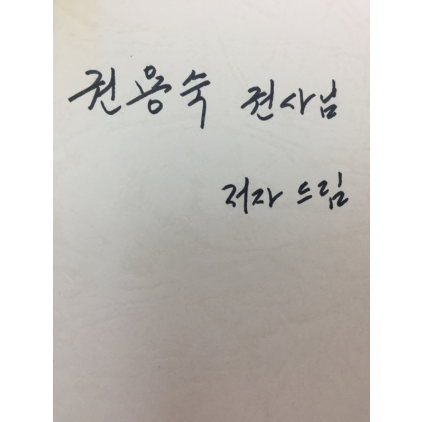 권용숙 권사님
저자 드림